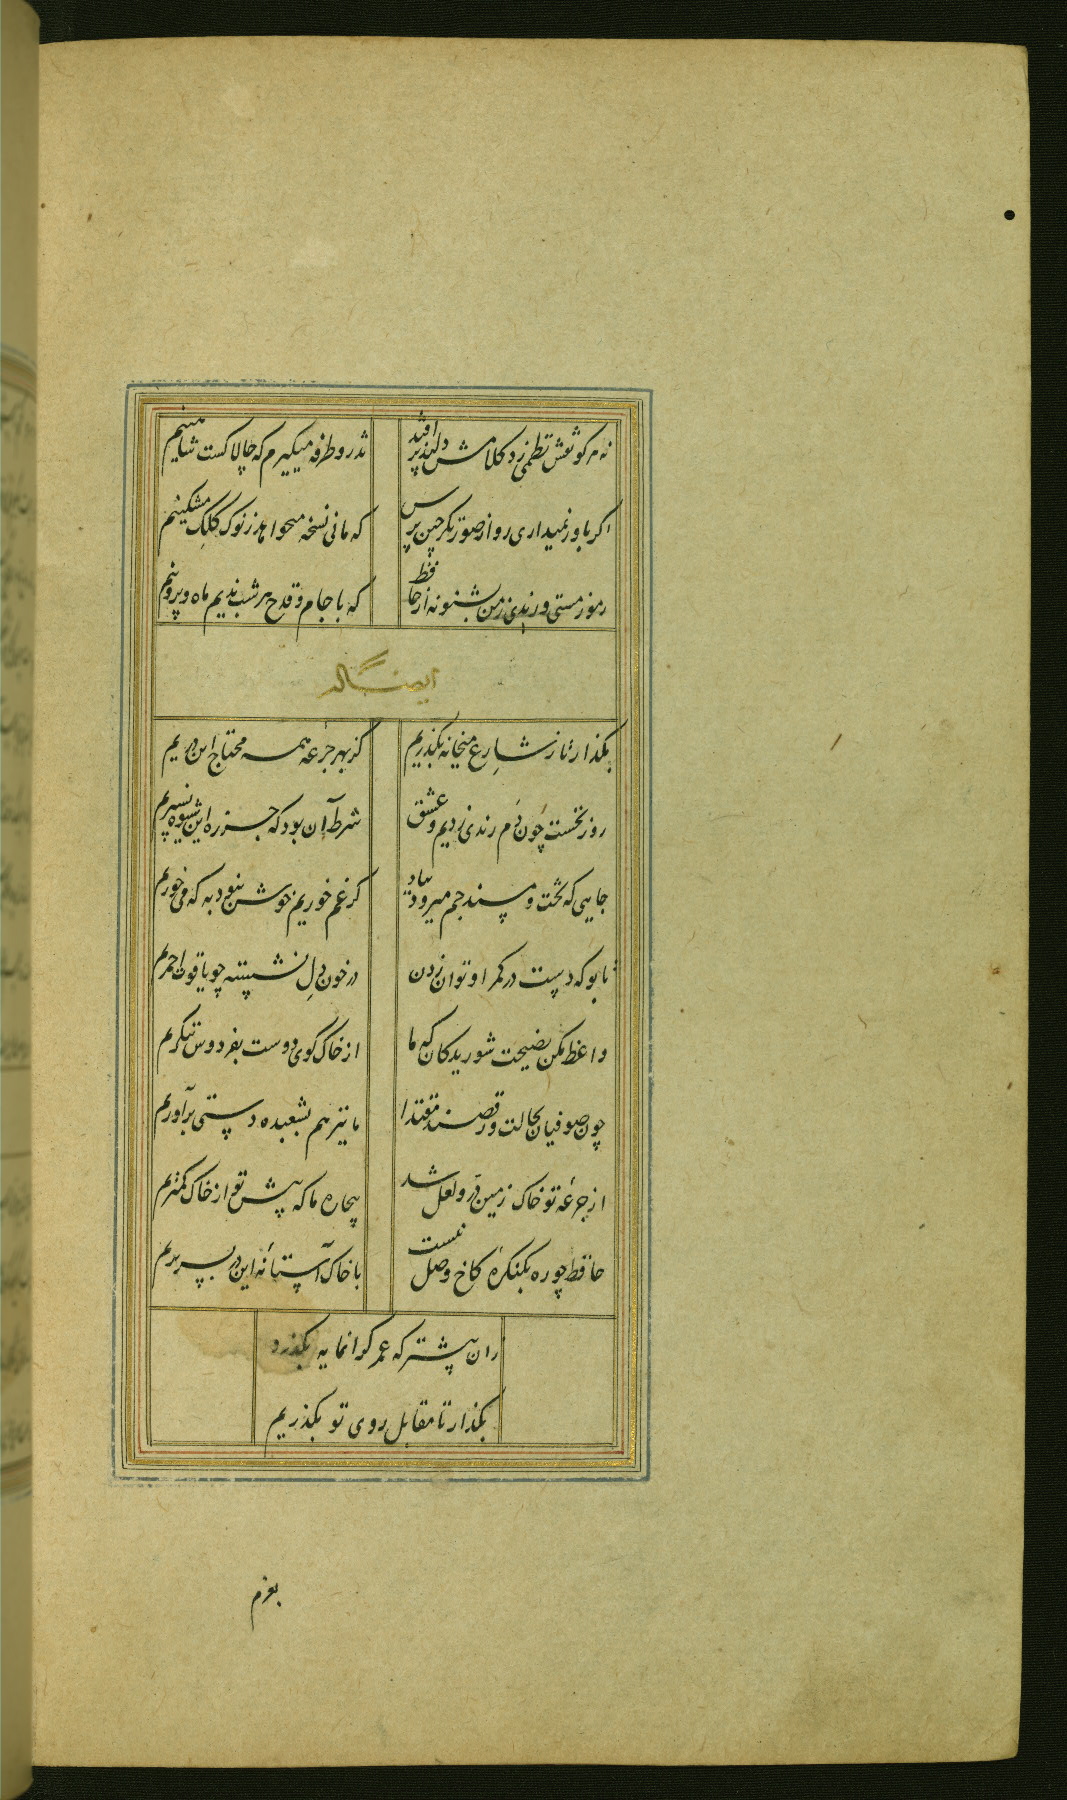 نه هر کو نقش نظمی زد کلامش دلپذیر افتد
تذرو طرفه میگیرم که چالاکست شاهینم
اکر باور نمیداری رو از صورتکر چین پرس
که مانی نسخه میخواهد ز نوک کلک مشکینم
رموز مستی و رندی ز من بشنو نه از حافظ
که با جام و قدح هر شب ندیم ماه و پروینم
ایضاً له
بکذار تا ز شارع میخانه بکذریم
کز بهر جرعه همه محتاج این دریم
روز نخست چون دم رندی زدیم و عشق
شرط آن بود که جز ره این شیوه نسپریم
جایی که تخت و مسند جم میرود بباد
کر غم خوریم خوش نبود به که می خوریم
تا بو که دست در کمر او توان زدن
در خون دل نشسته چو یاقوت احمریم
واعظ مکن نصیحت شوریدکان که ما
از خاک کوی دوست بفردوس ننکریم
چون صوفیان بحالت و رقصند مقتدا
ما نیز هم بشعبده دستی برآوریم
از جرعه تو خاک زمین در و لعل شد
بیچاره ما که پیش تو از خاک کمتریم
حافظ چو ره بکنکره کاخ وصل نیست
با خاک آستانه این در بسر بریم
زان پیشتر که عمر کرانمایه بکذرد
بکذار تا مقابل روی تو بکذریم
بعزم